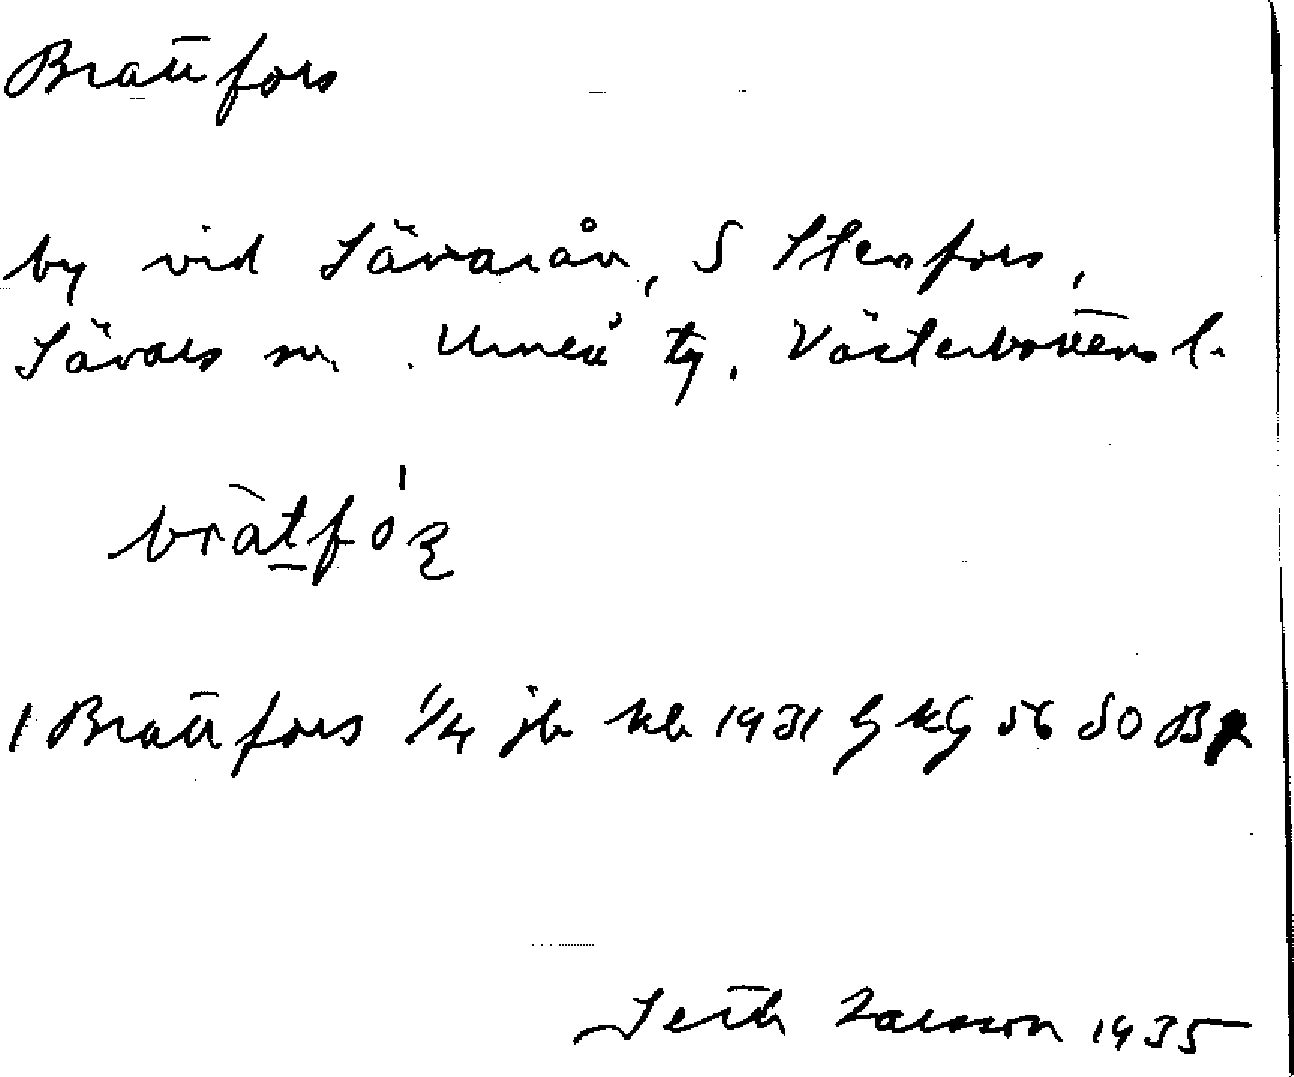 Brattfors
by vid Sävarån, S Stenfors,
Sävars sn. Umeå tg, Västerbottens l.
bràt̲fóʒ
1 Brattfors 1/4 jb kb 1931 G kG 56 SO Bg
Seth Larsson 1935